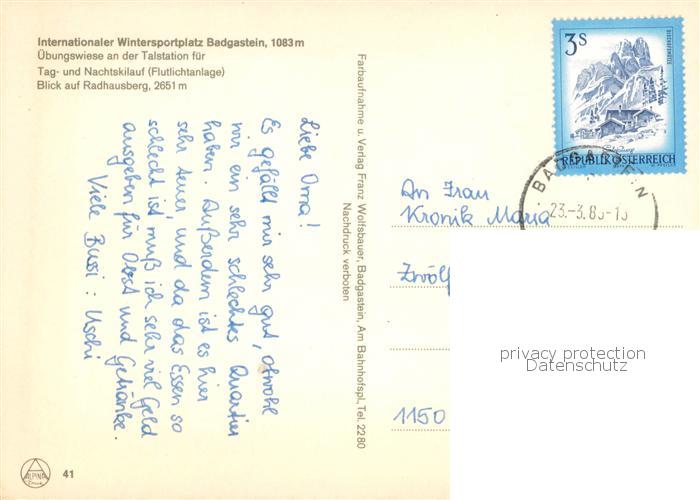 Internationaler Wintersportplatz Badgastein, 1083 m
Übungswiese an der Talstation für
Tag- und Nachtskilauf (Flutlichtanlage)
Blick auf Radhausberg, 2651 m
Liebe Oma!
Es gefällt mir sehr gut, obwohl
wir ein sehr schlechtes Quartier
haben. Außerdem ist es hier
sehr teuer, und da das Essen so
schlecht ist muß ich sehr viel Geld
ausgeben für Obst und Getränke.
Viele Bussi: Uschi
Farbaufnahme u. Verlag Franz Wolfsbauer, Badgastein, Am Bahnhofspl, Tel. 2280
Nachdruck verboten
3 S
REPUBLIK ÖSTERREICH
BADGASTEIN
An Frau
Kronik Maria
Zwölf
1150
privacy protection
Datenschutz
ALPINA
41